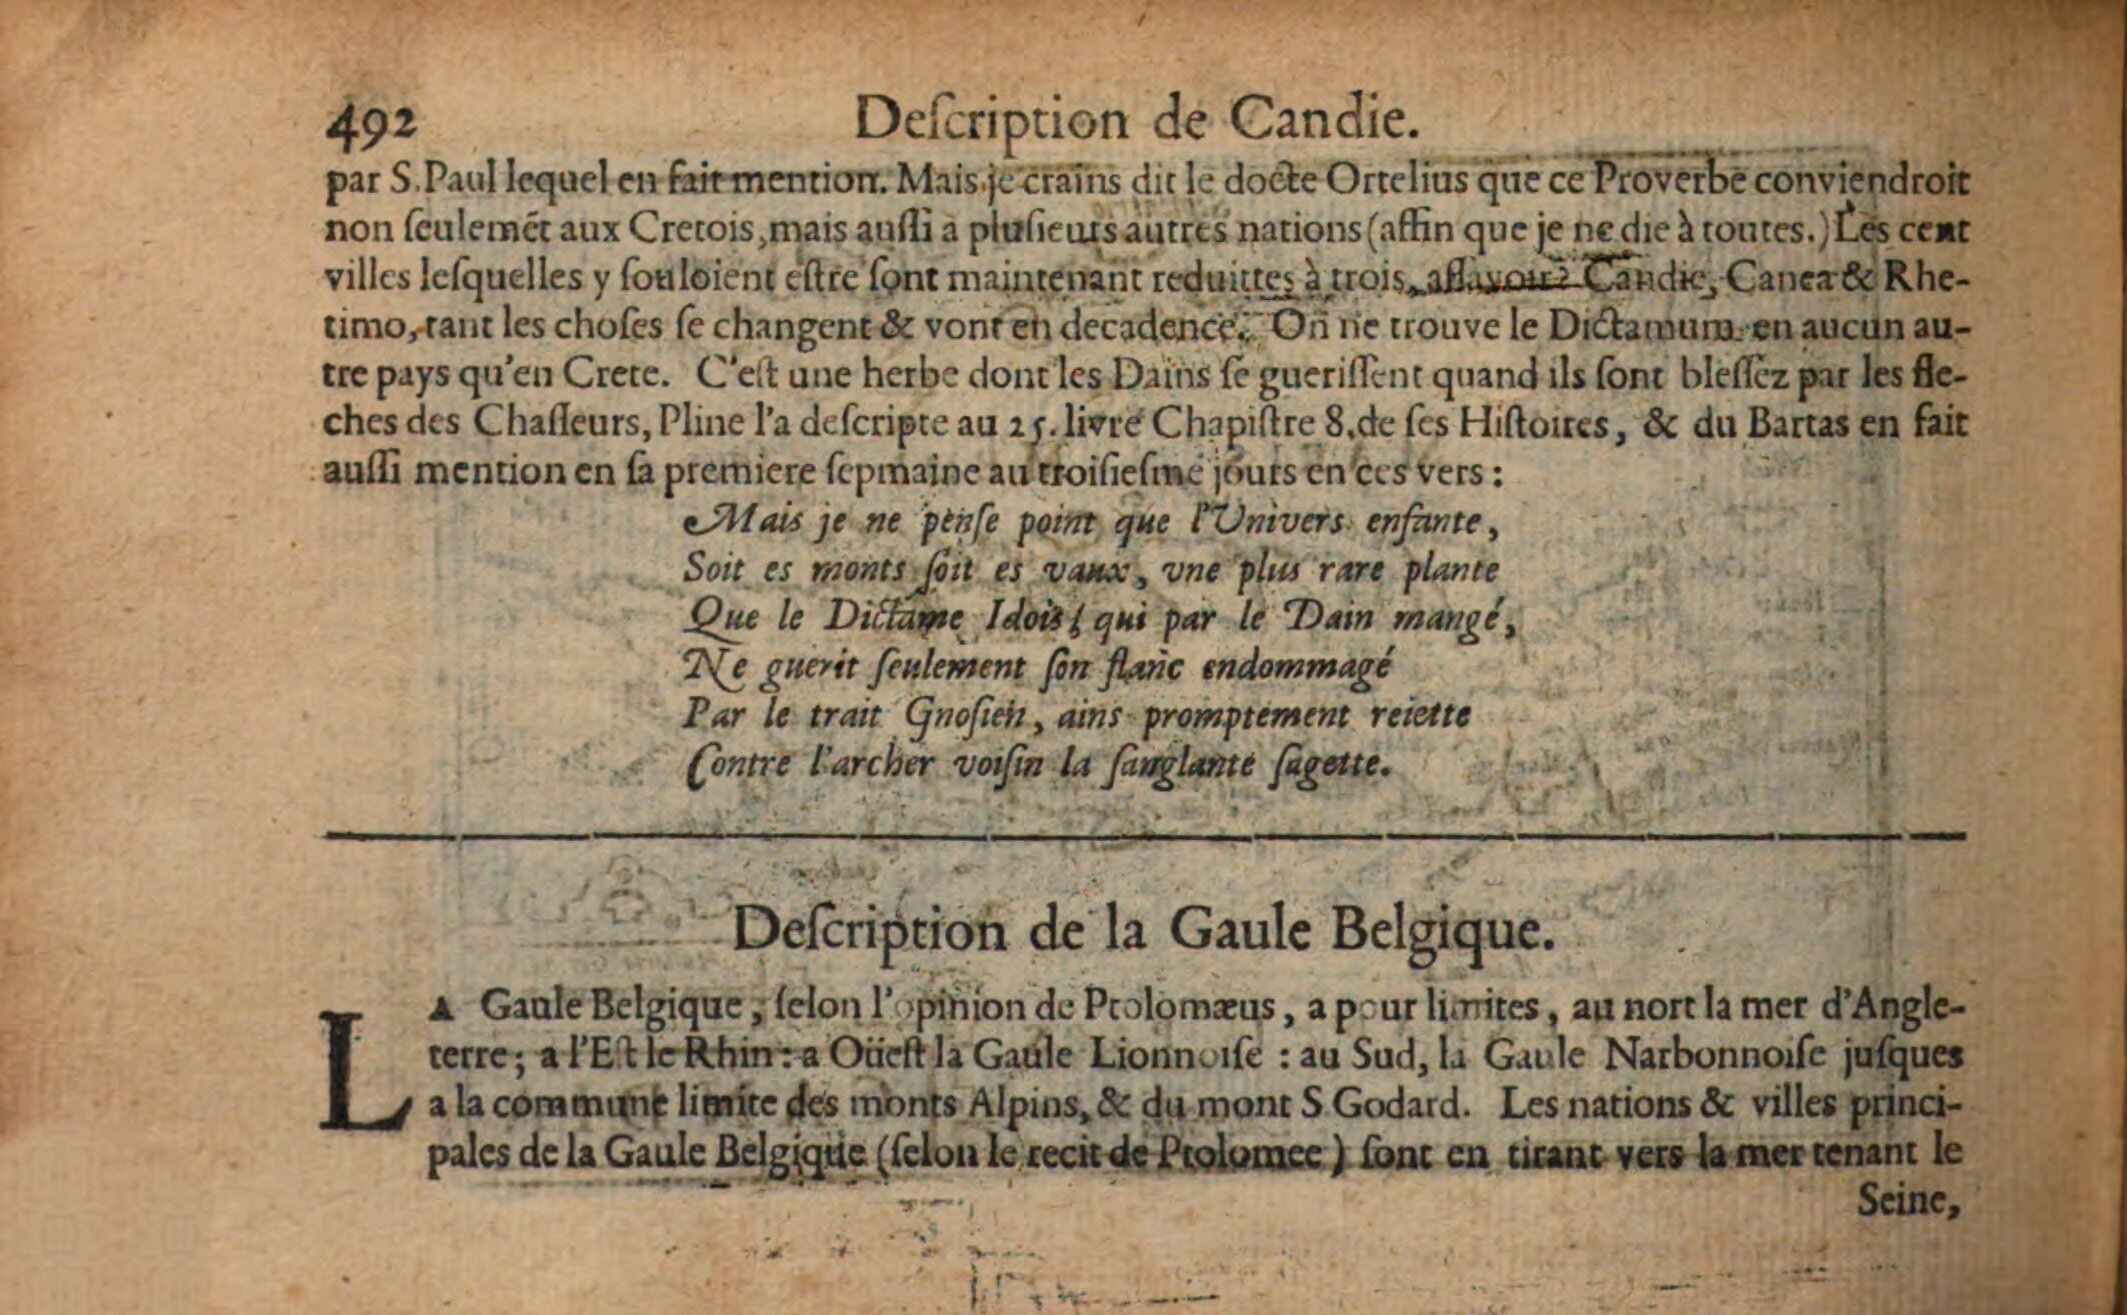 492 Deſcription de Candie.
par S.Paul lequel en fait mention. Mais je crains dit le docte Ortelius que ce Proverbe conviendroit
non ſeulemẽt aux Cretois,mais auſſi a pluſieurs autres nations (affin que je ne die à toutes.) Les cent
villes leſquelles y ſouloient eſtre ſont maintenant reduittes à trois, aſſavoir: Candie, Canea & Rhe-
timo, tant les choſes ſe changent & vont en decadence. On ne trouve le Dictamum en aucun au-
tre pays qu'en Crete. C'eſt une herbe dont les Dains ſe gueriſſent quand ils ſont bleſſez par les fle-
ches des Chaſſeurs, Pline l'a deſcripte au 25. livre Chapiſtre 8.de ſes Hiſtoires, & du Bartas en fait
auſſi mention en ſa premiere ſepmaine au troiſieſme jours en ces vers:
Mais je ne penſe point que l'Univers enfante,
Soit es monts ſoit es vaux, vne plus rare plante
Que le Dictame Idois; qui par le Dain mangé,
Ne guerit ſeulement ſon flanc endommagé
Par le trait Gnoſien, ains promptement reiette
Contre l'archer voiſin la ſanglante ſagette.
Deſcription de la Gaule Belgique.
LA Gaule Belgique, ſelon l'opinion de Ptolomæus, a pour limites, au nort la mer d'Angle-
terre; a l'Eſt le Rhin: a Oüeſt la Gaule Lionnoiſe : au Sud, la Gaule Narbonnoiſe juſques
a la commune limite des monts Alpins, & du mont S Godard. Les nations & villes princi-
pales de la Gaule Belgique (ſelon le recit de Ptolomee) ſont en tirant vers la mer tenant le
Seine,